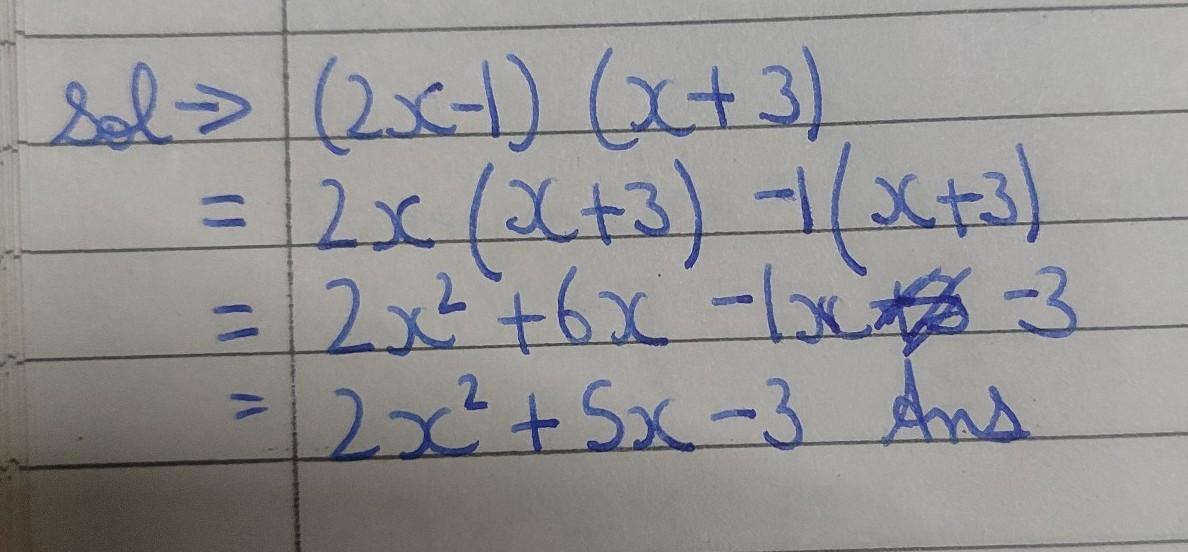 Sol → (2x-1) (x+3)
= 2x (x+3) -1 (x+3)
= 2x² +6x -1x -3
= 2x² + 5x - 3 Ans